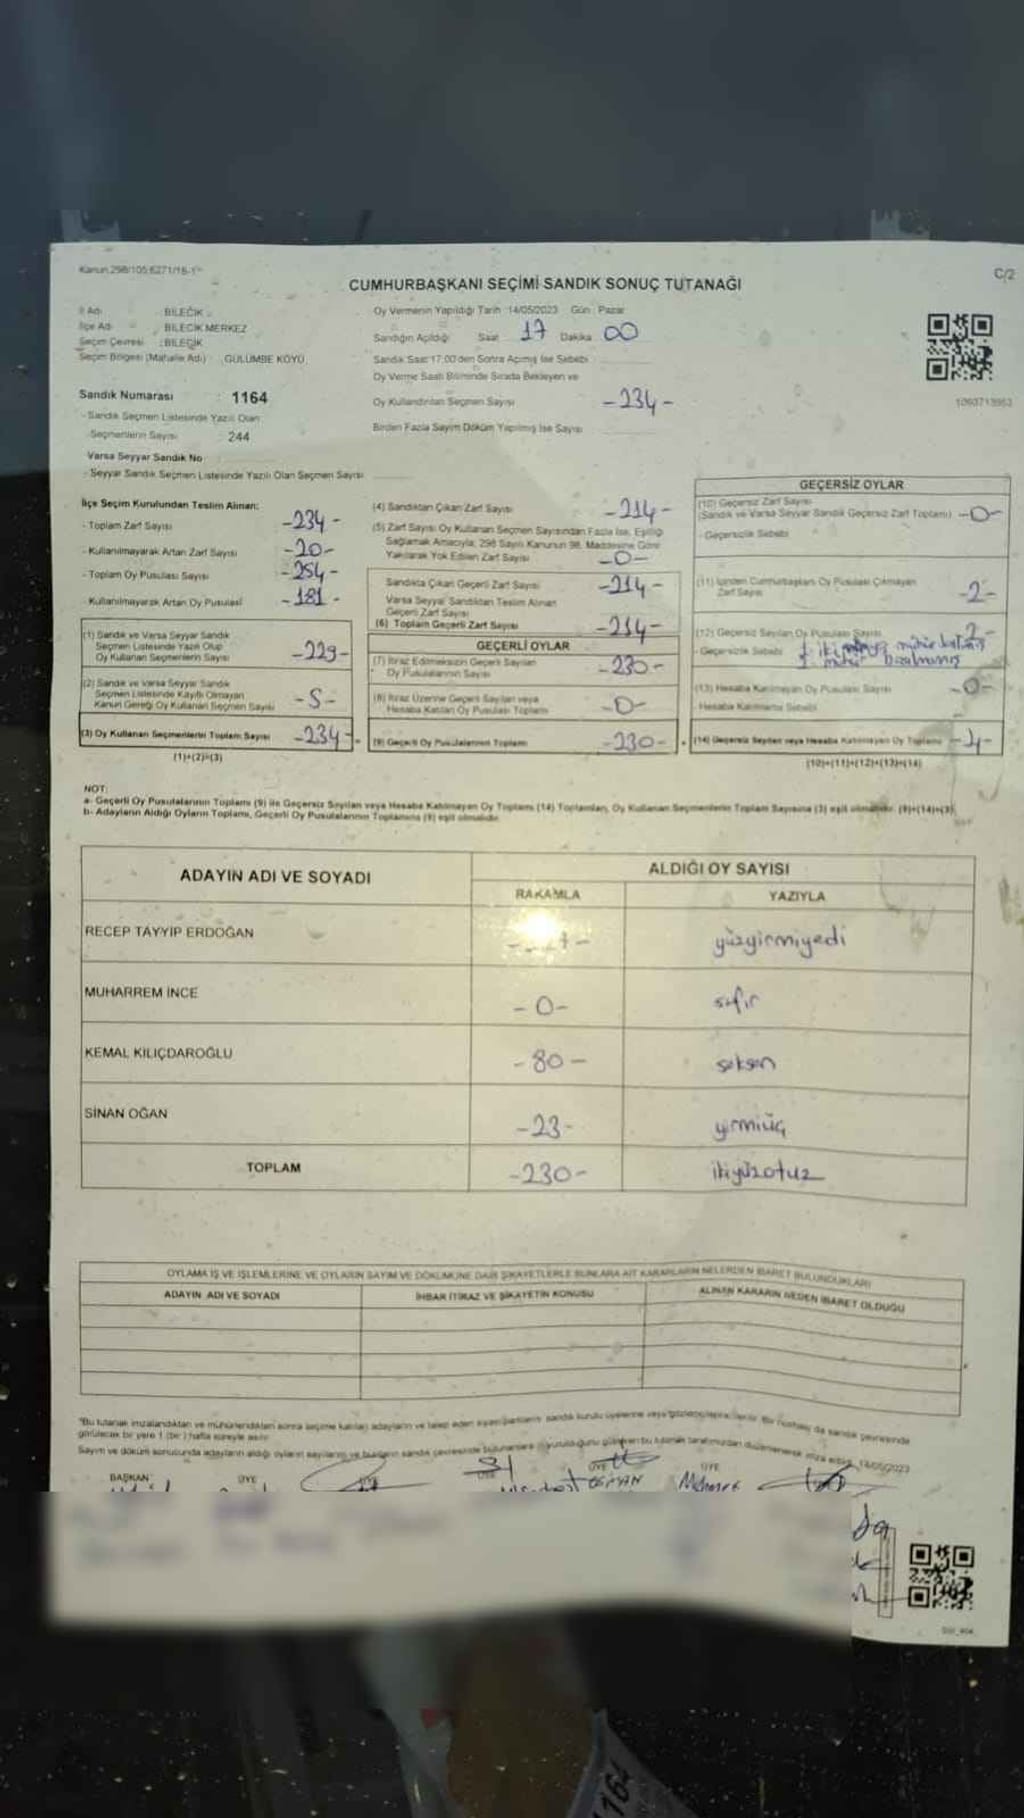 Kanun 298/105;6271/16-1
C/2
CUMHURBAŞKANI SEÇİMİ SANDIK SONUÇ TUTANAĞI
İl Adı : BİLECİK
İlçe Adı : BİLECİK MERKEZ
Seçim Çevresi : BİLECİK
Seçim Bölgesi (Mahalle Adı) : GÜLÜMBE KÖYÜ
Oy Vermenin Yapıldığı Tarih :14/05/2023 Gün : Pazar
Sandığın Açıldığı Saat 17 Dakika 00
Sandık Saat 17:00'den Sonra Açılmış İse Sebebi
Oy Verme Saati Bitiminde Sırada Bekleyen ve
Oy Kullandırılan Seçmen Sayısı -234-
Birden Fazla Sayım Döküm Yapılmış İse Sayısı
1060713953
Sandık Numarası : 1164
- Sandık Seçmen Listesinde Yazılı Olan
Seçmenlerin Sayısı 244
Varsa Seyyar Sandık No
- Seyyar Sandık Seçmen Listesinde Yazılı Olan Seçmen Sayısı
İlçe Seçim Kurulundan Teslim Alınan:
- Toplam Zarf Sayısı -234-
- Kullanılmayarak Artan Zarf Sayısı -20-
- Toplam Oy Pusulası Sayısı -254-
- Kullanılmayarak Artan Oy Pusulası -181-
(1) Sandık ve Varsa Seyyar Sandık
Seçmen Listesinde Yazılı Olup
Oy Kullanan Seçmenlerin Sayısı -229-
(2) Sandık ve Varsa Seyyar Sandık
Seçmen Listesinde Kayıtlı Olmayan
Kanun Gereği Oy Kullanan Seçmen Sayısı -5-
(3) Oy Kullanan Seçmenlerin Toplam Sayısı -234-
(1)+(2)=(3)
(4) Sandıktan Çıkan Zarf Sayısı -214-
(5) Zarf Sayısı Oy Kullanan Seçmen Sayısından Fazla İse, Eşitliği
Sağlamak Amacıyla; 298 Sayılı Kanunun 98. Maddesine Göre
Yakılarak Yok Edilen Zarf Sayısı -0-
Sandıkta Çıkan Geçerli Zarf Sayısı -214-
Varsa Seyyar Sandıktan Teslim Alınan
Geçerli Zarf Sayısı
(6) Toplam Geçerli Zarf Sayısı -214-
GEÇERLİ OYLAR
(7) İtiraz Edilmeksizin Geçerli Sayılan
Oy Pusulalarının Sayısı -230-
(8) İtiraz Üzerine Geçerli Sayılan veya
Hesaba Katılan Oy Pusulası Toplamı -0-
(9) Geçerli Oy Pusulalarının Toplamı -230-
GEÇERSİZ OYLAR
(10) Geçersiz Zarf Sayısı
(Sandık ve Varsa Seyyar Sandık Geçersiz Zarf Toplamı) -0-
- Geçersizlik Sebebi
(11) İçinden Cumhurbaşkanı Oy Pusulası Çıkmayan
Zarf Sayısı -2-
(12) Geçersiz Sayılan Oy Pusulası Sayısı -2-
- Geçersizlik Sebebi
(13) Hesaba Katılmayan Oy Pusulası Sayısı -0-
Hesaba Katılmama Sebebi
(14) Geçersiz Sayılan veya Hesaba Katılmayan Oy Toplamı -4-
(10)+(11)+(12)+(13)=(14)
NOT:
a- Geçerli Oy Pusulalarının Toplamı (9) ile Geçersiz Sayılan veya Hesaba Katılmayan Oy Toplamı (14) Toplamları, Oy Kullanan Seçmenlerin Toplam Sayısına (3) eşit olmalıdır. (9)+(14)=(3)
b- Adayların Aldığı Oyların Toplamı, Geçerli Oy Pusulalarının Toplamına (9) eşit olmalıdır.
ADAYIN ADI VE SOYADI
ALDIĞI OY SAYISI
RAKAMLA
YAZIYLA
RECEP TAYYİP ERDOĞAN yüzyirmiyedi
MUHARREM İNCE -0- sıfır
KEMAL KILIÇDAROĞLU -80- seksen
SİNAN OĞAN -23- yirmiüç
TOPLAM -230- ikiyüzotuz
OYLAMA İŞ VE İŞLEMLERİNE VE OYLARIN SAYIM VE DÖKÜMÜNE DAİR ŞİKAYETLERLE BUNLARA AİT KARARLARIN NELERDEN İBARET BULUNDUKLARI
ADAYIN ADI VE SOYADI
İHBAR İTİRAZ VE ŞİKAYETİN KONUSU
ALINAN KARARIN NEDEN İBARET OLDUĞU
BAŞKAN ÜYE ÜYE ÜYE ÜYE ÜYE
1164